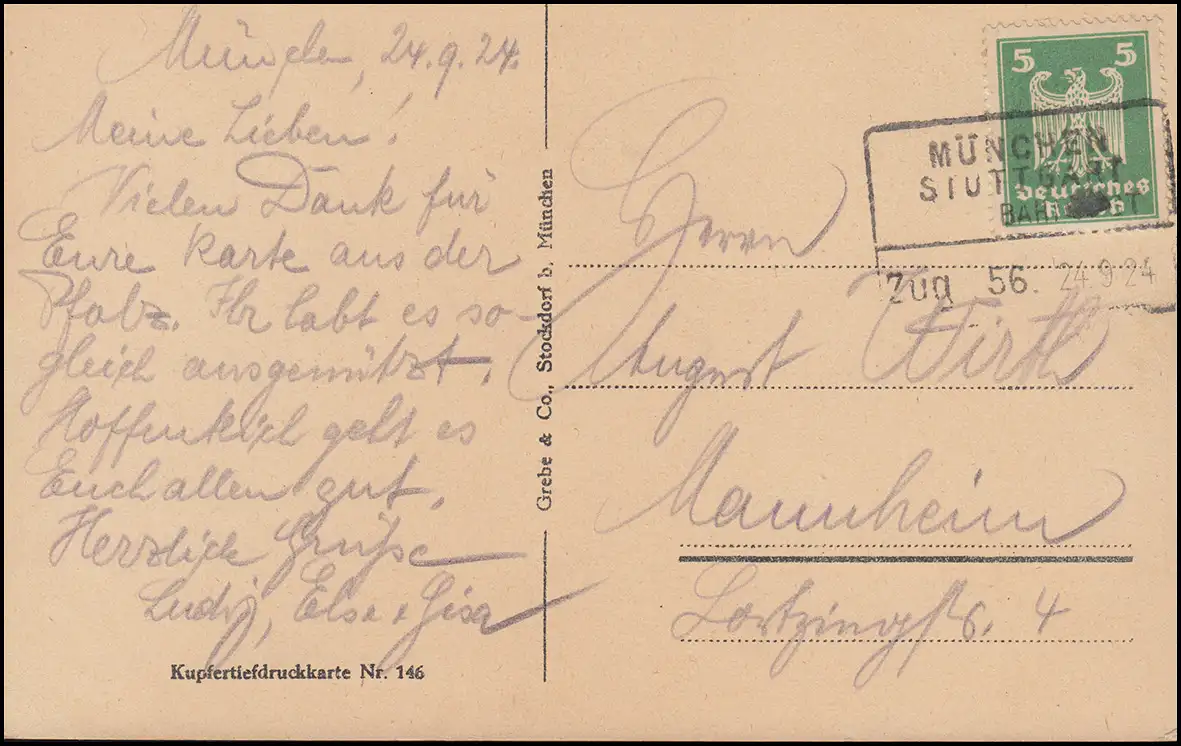 München, 24.9.24.
Meine Lieben!
Vielen Dank für
Eure Karte aus der
Pfalz. Ihr habt es so-
gleich ausgenützt.
Hoffentlich geht es
Euch allen gut.
Herzliche Grüße
Ludwig, Else + Gisa
Kupfertiefdruckkarte Nr. 146
Grebe & Co., Stockdorf b. München
5 5
Deutsches
Reich
MÜNCHEN
STUTTGART
BAHNPOST
Zug 56. 24 9 24
Herrn
August Wirth
Mannheim
Lortzingstr. 4